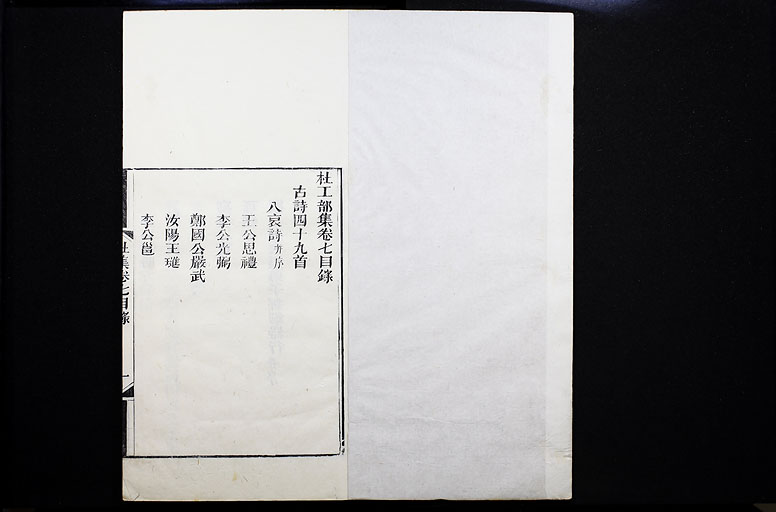 杜工部集卷七目錄
古詩四十九首
八哀詩并序
王公思禮
李公光弼
鄭國公嚴武
汝陽王璡
李公邕
杜集卷七目錄
一